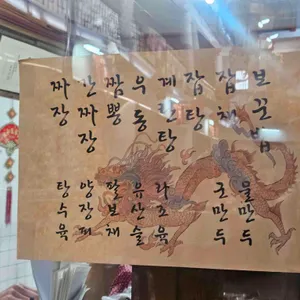 짜장
간짜장
짬뽕
우동
계란탕
잡탕
잡채
보꾼밥
탕수육
양장피
팔보채
유산슬
라조육
군만두
물만두